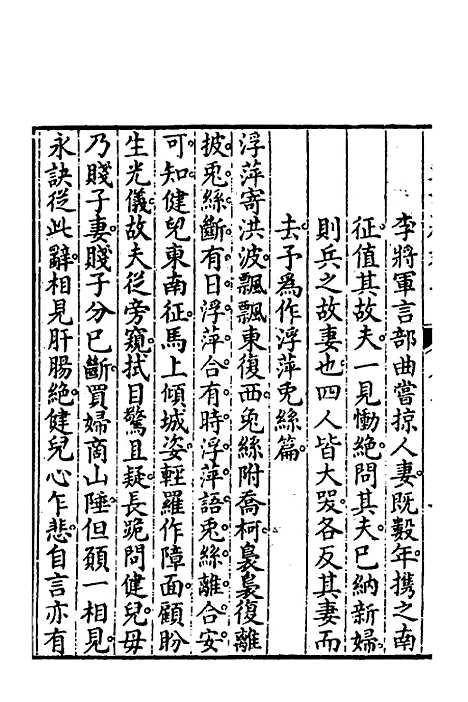 李將軍言部曲嘗掠人妻既數年攜之南
征值其故夫一見慟絶問其夫已納新婦
則兵之故妻也四人皆大哭各反其妻而
去予爲作浮萍兎絲篇
浮萍寄洪波飄飄東復西兎絲附喬柯裊裊復離
披兎絲斷有日浮萍合有時浮萍語兎絲離合安
可知健兒東南征馬上傾城姿輕羅作障面顧盼
生光儀故夫從旁窺拭目驚且疑長跪問健兒毋
乃賤子妻賤子分已斷買婦商山陲但願一相見
永訣從此辭相見肝腸絶健兒心乍悲自言亦有